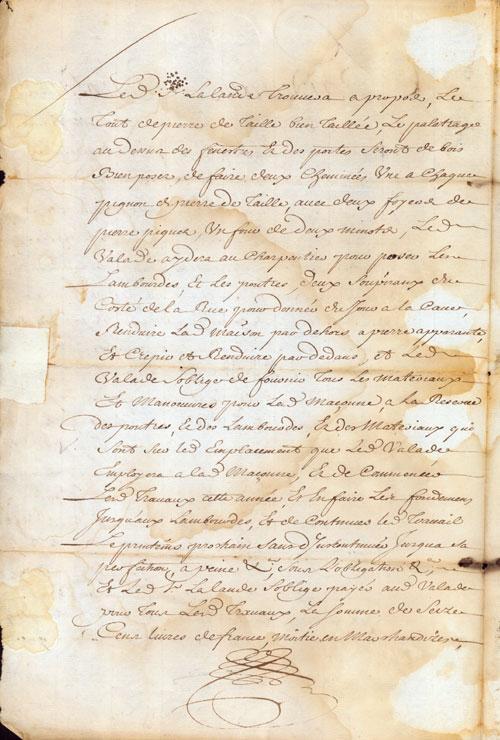 Led. Sr. Lalande trouvera a propos, Le
Tout de pierre de Taille bien Taillée, Le palatrage
au dessus des fenestres & des portes seront de bois
Bien poser, de faire deux Cheminées, Une a Chaque
pignon de pierre de Taille avec deux foyers de
pierre piquer, Un four de deux minots, Led.
Valade aydera au Charpentier pour poser Les
Lambourdes, et Les poutres, deux Soupiraux du
Costé de la Rue pour donner du Jour a la Cave,
Renduire Lad. Maison par dehors a pierre apparante,
Et Crepir et Renduire par dedans, et Led.
Valade s'oblige de fournir Tous Les Materiaux
Et Manoeuvres pour Lad. Maçonne, a La Reserve
des poutres, & des Lambourdes, & des Materiaux qui
sont sur led. Emplacement que Led. Valade
Employera a lad. Maçonne, & de Commencer
Lesd. Travaux cette année, Et En faire Les fondemens
Jusquaux Lambourdes, et de Continuer led. Travail
Le printems prochain sans discontinuer Jusqua sa
perfection, a peine &c., sous L'obligation &c.,
Et Led. Sr. Lalande s'oblige payer aud. Valade
pour Tous Lesd. Travaux, La somme de Seize
Cens livres de france, moitié en Marchandises,